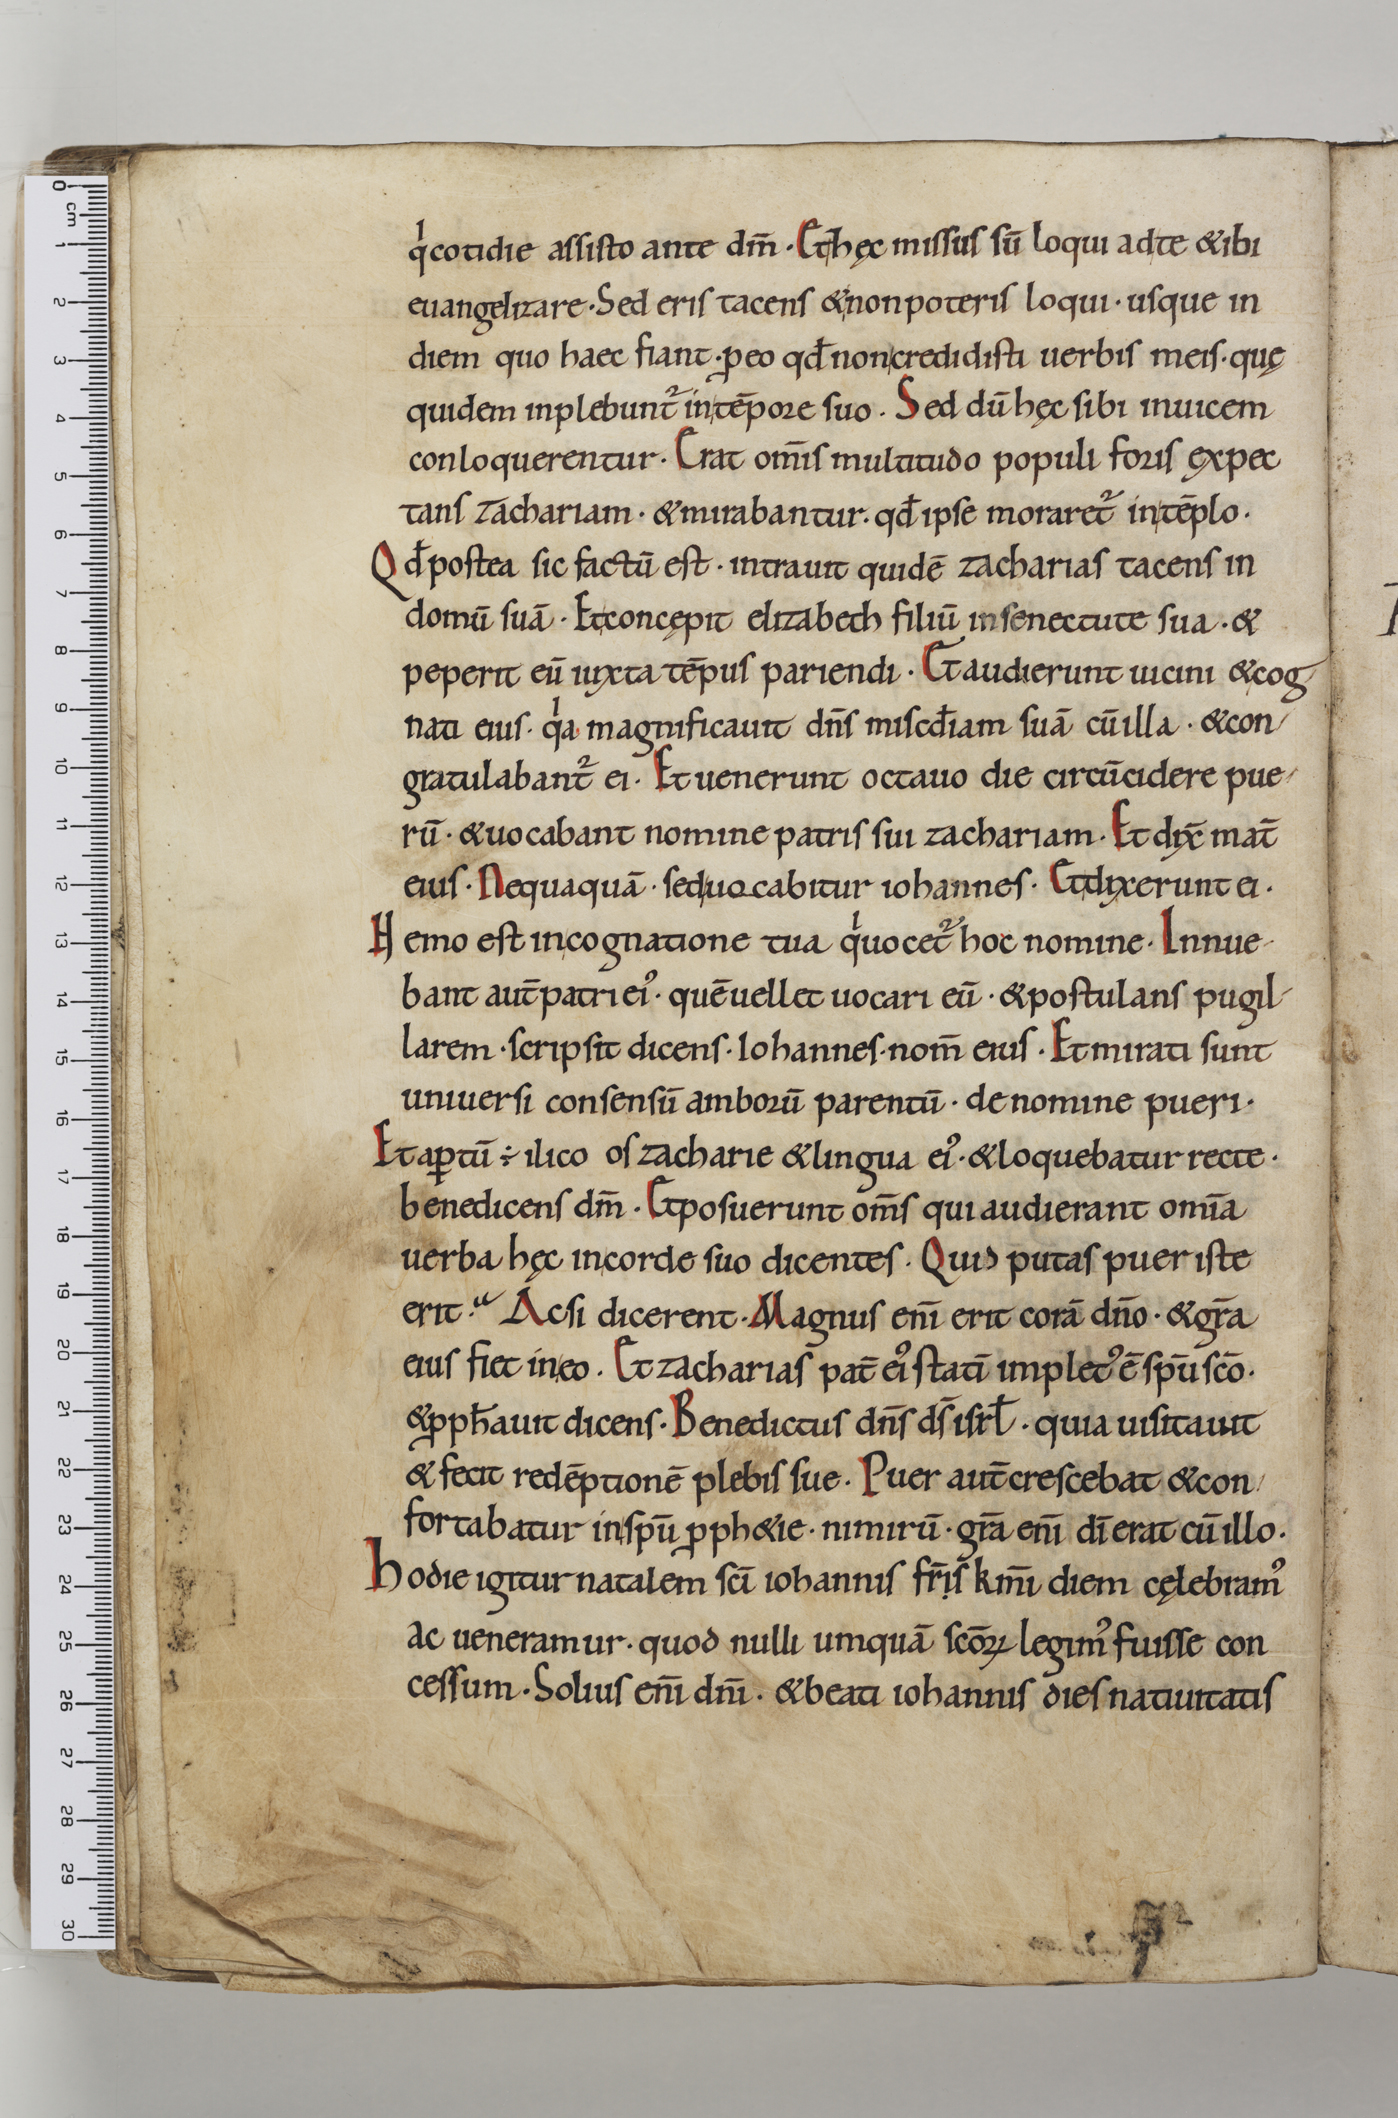 qͥ cotidie assisto ante dm̄ · Et hęc missus sū loqui ad te & ibi
euangelizare · Sed eris tacens & non poteris loqui · usque in
diem quo haec fiant · ꝓ eo qđ non credidisti uerbis meis · quę
quidem inplebunt᷑ in tēpore suo · Sed dū hęc sibi inuicem
conloquerentur · Erat om̄is multitudo populi foris expec
tans zachariam · & mirabantur · qđ ipse moraret᷑ in tēplo ·
Qđ postea sic factū est · intrauit quidē zacharias tacens in
domū suā · Et concępit elizabeth filiū in senectute sua · &
peperit eū iuxta tēpus pariendi · Et audierunt uicini & cog
nati eius · qͥa magnificauit dn̄s miscđiam suā cū illa · & con
gratulabant᷑ ei · Et uenerunt octauo die circūcidere pue
rū · & uocabant nomine patris sui zachariam · Et dix̄ mat̄
eius · Nequaquā · sed uocabitur iohannes · Et dixerunt ei ·
Nemo est in cognatione tua qͥ uocet᷑ hoc nomine · Innue
bant aut̄ patri eiꝰ · quē uellet uocari eū · & postulans pugil
larem · scripsit dicens · Iohannes · nom̄ eius · Et mirati sunt
uniuersi consensū amborū parentū · de nomine pueri ·
Et aꝑtū ÷ ilico os zacharie & lingua eiꝰ · & loquebatur recte ·
benedicens dm̄ · Et posuerunt om̄s qui audierant omīa
uerba hęc in corde suo dicentes · Quid putas puer iste
erit · Ac si dicerent · Magnus enī erit corā dn̄o · & gr̄a
eius fiet in eo · Et zacharias pat̄ eiꝰ statī impletꝰ ē sp̄u sc̄o ·
& ꝓph̄auit dicens · Benedictus dn̄s ds̄ isrƚ · quia uisitauit
& fecit redēptionē plebis sue · Puer aut̄ crescebat & con
fortabatur in sp̄u ꝓph&ie · nimirū · gr̄a enī dī erat cū illo ·
Hodie igitur natalem sc̄i iohannis fr̄is km̄i diem cęlebramꝰ
ac ueneramur · quod nulli umquā sc̄oꝝ legimꝰ fuisse con
cessum · Solius enī dn̄i · & beati iohannis dies natiuitatis